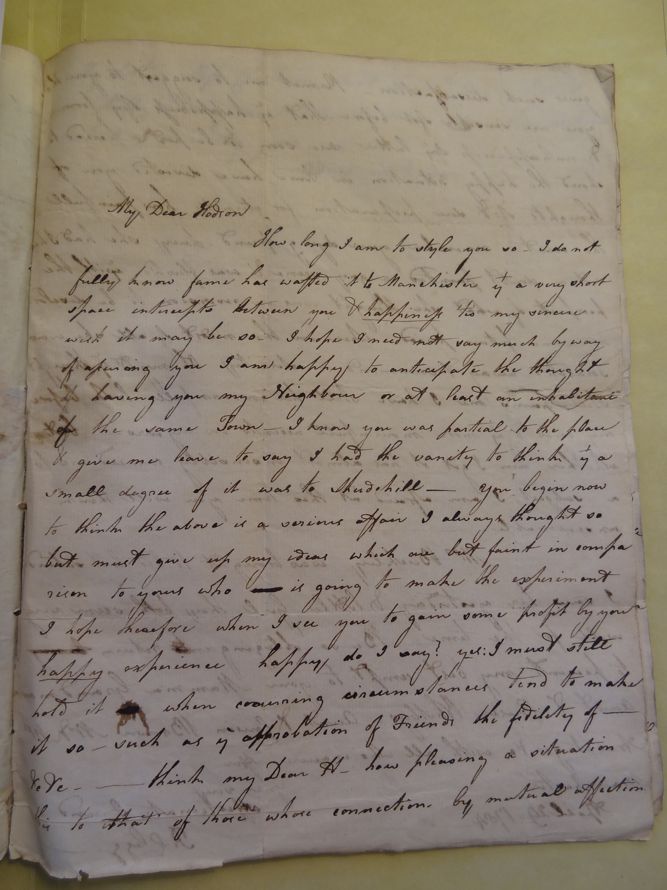 My Dear Hodson
How long I am to style you so - I do not
fully know fame has wafted it to Manchester yt a very short
space intercepts between you & happiness 'tis my sincere
wish it may be so - I hope I need not say much by way
of assuring you I am happy to anticipate the thought
of having you my Neighbour or at least an inhabitant
of the same Town - I know you was partial to the place
& give me leave to say I had the vanity to think yt a
small degree of it was to Shudehill - You begin now
to think the above is a serious affair I always thought so
but must give up my ideas which are but faint in compa
rison to yours who is going to make the experiment
I hope therefore when I see you to gain some profit by your
happy experience happy do I say? yes: I must still
hold it when concurring circumstances tend to make
it so - such as ye approbation of Friends the fidelity of -
&c &c - - think my Dear H- how pleasing a situation
this to that of those whose connection by mutual affection